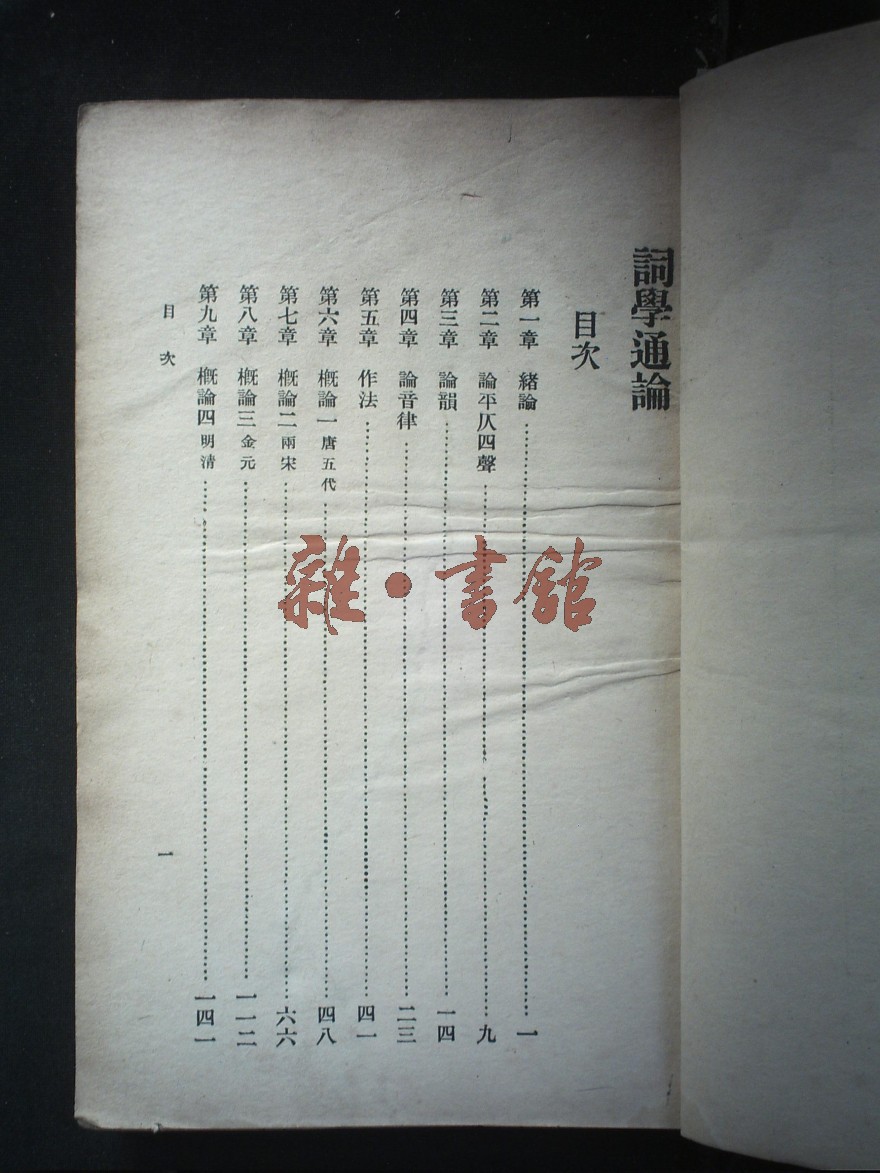 詞學通論
目次
第一章 緒論……一
第二章 論平仄四聲……九
第三章 論韻……一四
第四章 論音律……二三
第五章 作法……四一
第六章 概論一唐五代……四八
第七章 概論二兩宋……六六
第八章 概論三金元……一一二
第九章 概論四明清……一四一
目次
一
雜·書館